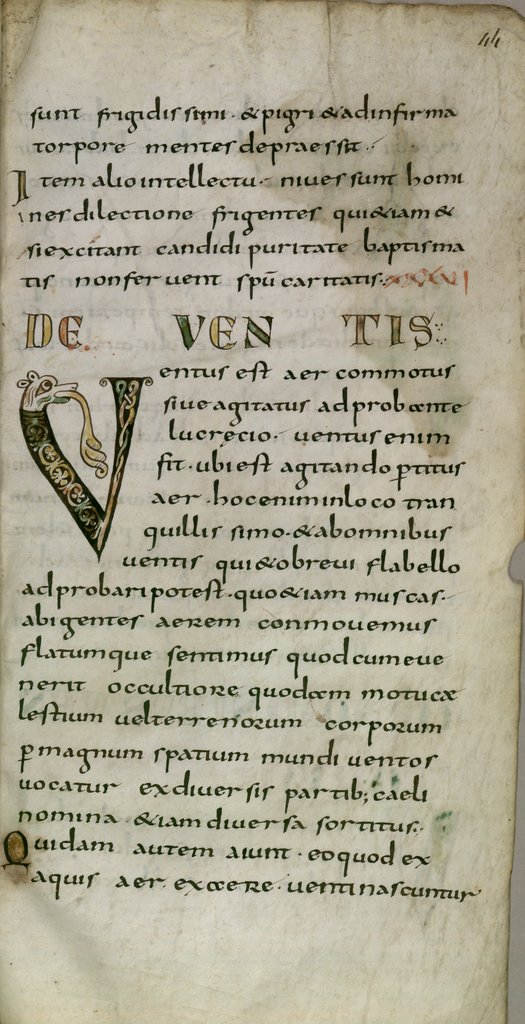 44
sunt frigidissimi · & pigri & ad infirma
torpore mentes depraessit ·
Item alio intellectu · nives sunt homi
nes dilectione frigentes qui &iam &
si excitant candidi puritate baptisma
tis non fervent spū caritatis · XXXVI
DE VENTIS
Ventus est aer commotus
sive agitatus adprobante
lucrecio · ventus enim
fit · ubi est agitando ꝑtitus
aer · hoc enim in loco tran
quillissimo · & ab omnibus
ventis qui&o brevi flabello
adprobari potest · quo &iam muscas ·
abigentes aerem conmovemus
flatumque sentimus quod cum eve
nerit occultiore quodam motu cæ
lestium vel terrenorum corporum
ꝑ magnum spatium mundi ventos
vocatur ex diversis partib; caeli
nomina &iam diversa sortitus ·
Quidam autem aiunt · eo quod ex
aquis aer · exaere · venti nascuntur